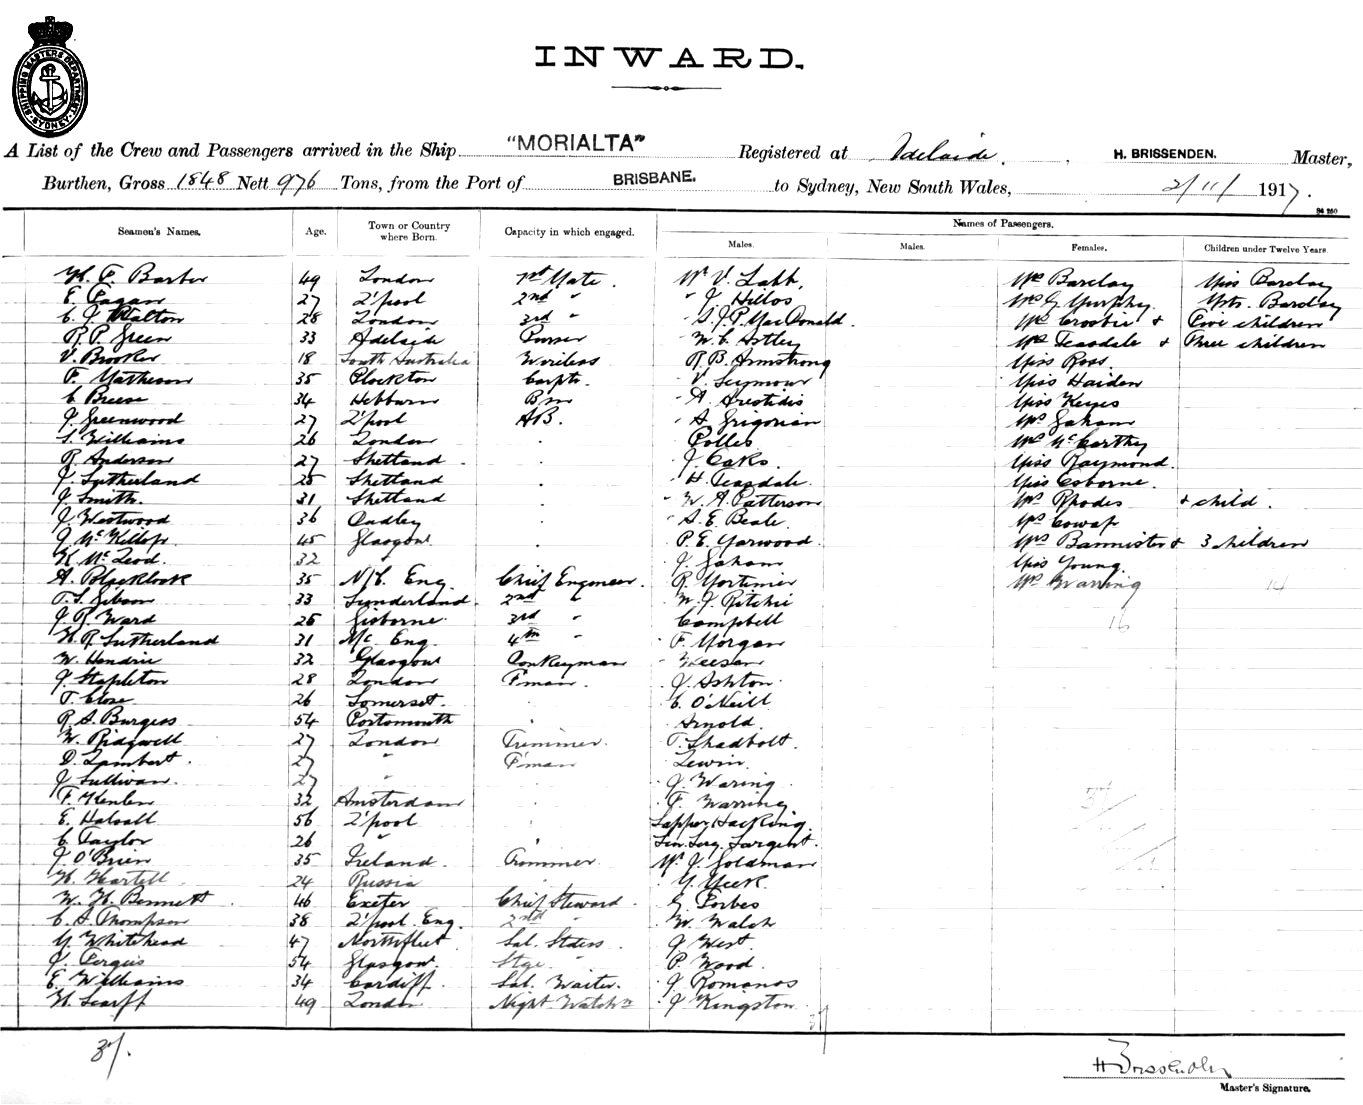 SHIPPING MASTERS DEPARTMENT SYDNEY
INWARD.
A List of the Crew and Passengers arrived in the Ship "MORIALTA" Registered at Adelaide, H. BRISSENDEN. Master,
Burthen, Gross 1848 Nett 976 Tons, from the Port of BRISBANE. to Sydney, New South Wales, 2/11/1917.
Names of Passengers.
Seamen's Names. Age. Town or Country where Born. Capacity in which engaged. Males. Males. Females. Children under Twelve Years.
Barber 49 London 1st Mate. Mr V. Labb, Mrs Barclay Miss Barclay
E. Fagan 27 L'pool 2nd " " J. Hillos Mrs G Murphy Mts. Barclay
C. J. Walton 28 London 3rd " S.J.P. MacDonald. Mrs Crosbie & Five children
R. P. Green 33 Adelaide Purser W. C. Astley Mrs Teasdale & Three children
V. Brooker 18 South Australia Wireless R. B. Armstrong Miss Ross
F. Matheson 35 Plockton Carptr. V. Seymour Miss Haiden
C Breese 34 Hebburn Bm A Arestidis Miss Keyes
J. Greenwood 27 L'pool AB. A Grigorian Mrs Gaham
S. Williams 26 London Polles Mrs McCarthy
R. Anderson 27 Shetland J Oaks. Miss Raymond.
J. Sutherland 25 Shetland H Teasdale. Miss Osborne.
J. Smith. 31 Shetland W. A. Patterson Mrs Rhodes & child.
J. Westwood 36 Dudley A. E. Beale. Mrs Cowap
J McKillop 45 Glasgow P. E. Yarwood. Mrs Bannister & 3 children
McLeod. 32 " J. Gaham Miss Young.
A. Blacklock 35 N/C. Eng. Chief Engineer. R Mortimer Mrs Warring 14
T. S. Gibson 33 Sunderland. 2nd " W. J. Ritchie
J R. Ward 25 Gisborne 3rd " Campbell 16
H. R. Sutherland 31 N/c. Eng. 4th " F. Morgan
W. Hendrie 32 Glasgow Donkeyman
J. Stapleton 28 London F'man. J. Ashton
T. Close 26 Somerset. C. O'Neill
R. S. Burgess 54 Portsmouth Arnold.
W. Ridgwell 27 London Trimmer. T. Shadbolt.
D. Lambert. 27 " F'man Lewin.
J Sullivan. 27 " J. Waring
F. 32 Amsterdam F. Warring
E. Halsall 56 L'pool Sapper Hacking
C Taylor 26 " Sargent.
J O'Brien 35 Ireland. Trimmer. Mr J. Goldman
H. Hartell 24 Russia
W. H. Bennett 46 Exeter Chief Steward. G Forbes
C S. Thompson 38 L'pool Eng. 2nd " W. Walsh
M. Whitehead 47 Northfleet. Sal. Stdess. J West.
J. Fergus 54 Glasgow. Stge " P Wood.
E. Williams 34 Cardiff. Sal. Waiter. J Romanos
H. Scarff 49 London Night Watchn J Kingston
37 37
37.
H Brissenden
Master's Signature.